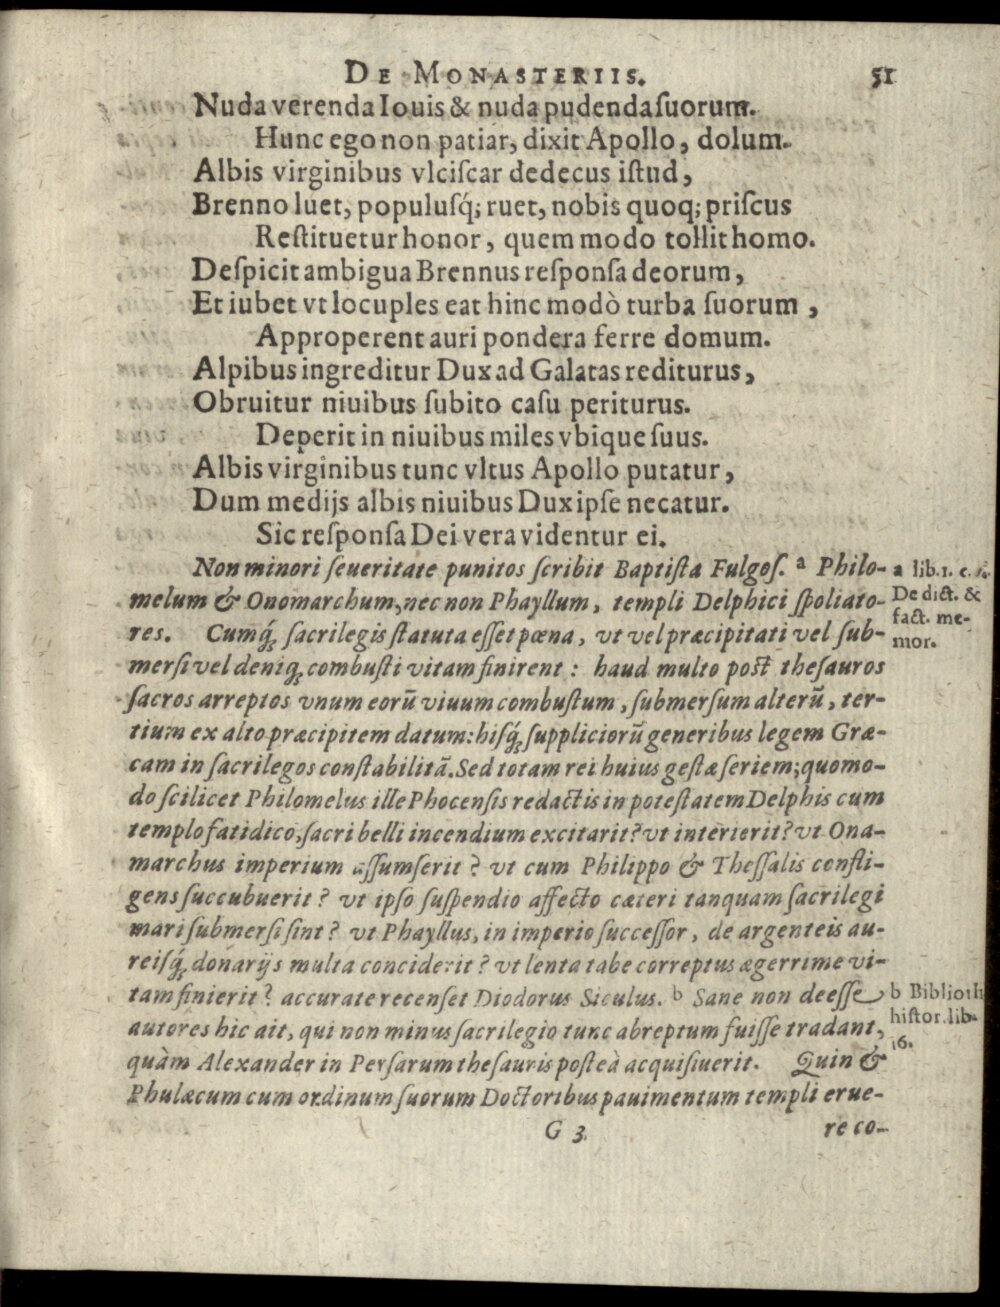 DE MONASTERIIS. 51
Nuda verenda Iouis & nuda pudenda ſuorum.
Hunc ego non patiar, dixit Apollo, dolum.
Albis virginibus vlciſcar dedecus iſtud,
Brenno luet, populuſq́; ruet, nobis quoq; priſcus
Reſtituetur honor, quem modo tollit homo.
Deſpicit ambigua Brennus reſponſa deorum,
Et iubet vt locuples eat hinc modò turba ſuorum,
Approperent auri pondera ferre domum.
Alpibus ingreditur Dux ad Galatas rediturus,
Obruitur niuibus ſubito caſu periturus.
Deperit in niuibus miles vbique ſuus.
Albis virginibus tunc vltus Apollo putatur,
Dum medijs albis niuibus Dux ipſe necatur.
Sic reſponſa Dei vera videntur ei.
Non minori ſeueritate punitos ſcribit Baptiſta Fulgoſ. a Philo-
melum & Onomarchum, nec non Phayllum, templi Delphici ſpoliato-
res. Cumq́; ſacrilegis ſtatuta eſſet pœna, vt vel præcipitati vel ſub-
merſi vel deniq; combuſti vitam finirent: haud multo poſt theſauros
ſacros arreptos vnum eorũ viuum combuſtum, ſubmerſum alterũ, ter-
tium ex alto præcipitem datum: hiſq́; ſuppliciorũ generibus legem Græ-
cam in ſacrilegos conſtabilitã. Sed totam rei huius geſtæ ſeriem; quomo-
do ſcilicet Philomelus ille Phocenſis redactis in poteſtatem Delphis cum
templo fatidico, ſacri belli incendium excitarit? vt interierit? vt Ona-
marchus imperium aſſumſerit? vt cum Philippo & Theſſalis confli-
gens ſuccubuerit? vt ipſo ſuſpendio affecto cæteri tanquam ſacrilegi
mari ſubmerſi ſint? vt Phayllus, in imperio ſucceſſor, de argenteis au-
reiſq́; donarijs multa conciderit? vt lenta tabe correptus ægerrime vi-
tam finierit? accurate recenſet Diodorus Siculus. b Sane non deeſſe
autores hic ait, qui non minus ſacrilegio tunc abreptum fuiſſe tradant,
quàm Alexander in Perſarum theſauris poſteà acquiſiuerit. Quin &
Phulæcum cum ordinum ſuorum Doctoribus pauimentum templi erue-
G 3 re co-
a lib. 1. c.
De dict. &
fact. me-
mor.
b Biblioth
hiſtor. lib.
16.